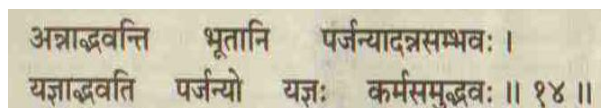 अन्नाद्भवन्ति भूतानि पर्जन्यादन्नसम्भवः ।
यज्ञाद्भवति पर्जन्यो यज्ञः कर्मसमुद्भवः ॥ १४ ॥